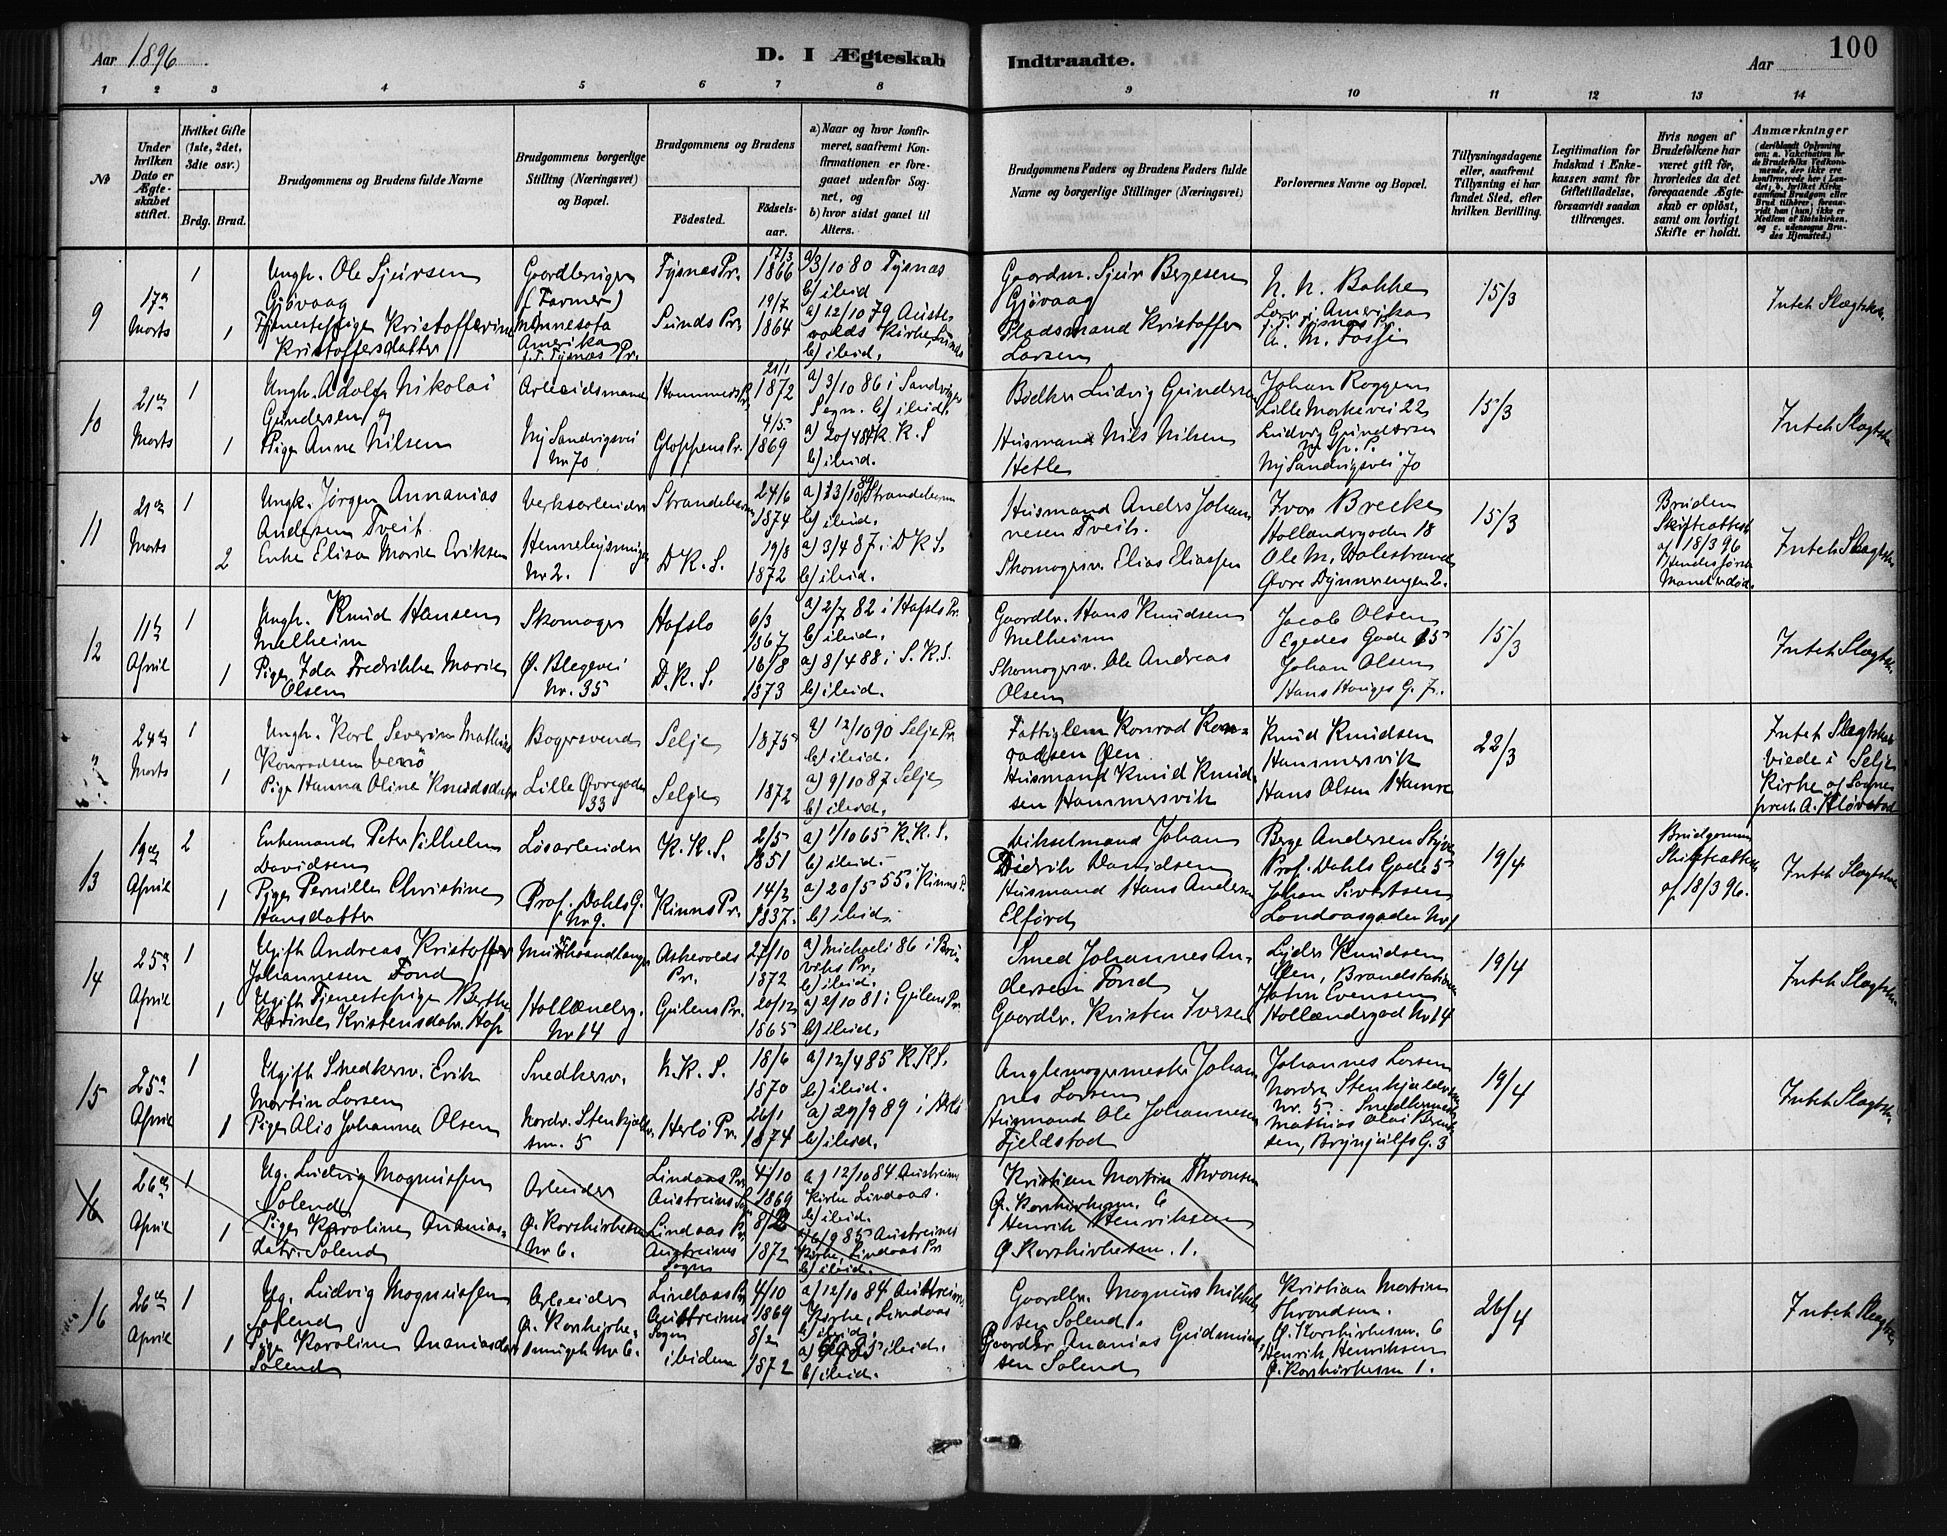 Aar 1896.
D. I Ægteskab Indtraadte.
Aar
100
1 2 3 4 5 6 7 8 9 10 11 12 13 14
No
Under hvilken Dato er Ægteskabet stiftet.
Hvilket Gifte (1ste, 2det, 3die osv.)
Brdg. Brud.
Brudgommens og Brudens fulde Navne
Brudgommens borgerlige Stilling (Næringsvei) og Bopæl.
Brudgommens og Brudens
Födested. Födselsaar.
a) Naar og hvor konfirmeret, saafremt Konfirmationen er foregaaet udenfor Sognet, og
b) hvor sidst gaaet til Alters.
Brudgommens Faders og Brudens Faders fulde Navne og borgerlige Stillinger (Næringsvei)
Forlovernes Navne og Bopæl.
Tillysningsdagene eller, saafremt Tillysning ei har fundet Sted, efter hvilken Bevilling.
Legitimation for Indskud i Enkekassen samt for Giftetilladelse, forsaavidt saadan tiltrænges.
Hvis nogen af Brudefolkene har været gift för, hvorledes da det foregaaende Ægteskab er oplöst, samt om lovligt Skifte er holdt.
Anmærkninger
9
17de Marts
1
1
Ungk. Ole Sjursen
Gjövaag
Tjenestepige Kristofferine
Kristoffersdatter
Gaardbruger
(Farmer)
Minnesota
Amerika
f. T. Tysnæs Pr.
Tysnæs Pr.
Sunds Pr.
17/3
1866
19/7
1864
a) 3/10 80 Tysnæs
b) ibid
a) 12/10 79 Austevolds Kirke, Sunds
b) ibid.
Gaardm. Sjur Bergesen
Gjövaag
Pladsmand Kristoffer
Larsen
N. N. Bakke
Amerika
f. T. Tysnæs Pr
A. M. Fosse
15/3
Intet Slægtsk.
10
21de Marts
1
1
Ungk. Adolf Nikolai
Gundersen og
Pige Anne Nilsen
Arbeidsmand
Ny Sandvigsvei
Nr 70
Hammers Pr.
Gloppens Pr.
21/1
1872
4/5
1869
a) 3/10 86 i Sandvigens
Sogn. b) ibid.
b) ibid.
Bödker Ludvig Gundersen
Husmand Nils Nilsen
Hetle
Johan Roggen
Lille Markevei 22
Ludvig Gundersen
Ny Sandvigsvei 70
15/3
Intet Slægtsk.
11
21de Marts
1
2
Ungk. Jörgen Annanias
Andersen Tveit.
Enke Elisa Marie Eriksen
Verksarbeider
Hennebijsmuget
Nr 2.
Strandebarm
D. K. S.
24/6
1874
19/8
1872
Strandebarm
b) ibid.
a) 3/4 87 i D K S.
b) ibid.
Husmand Anders Johannesen Tveit.
Skomagersv. Elias Eliassen
Ivar Brekke
Hollendergaden 18
Ole M. Halestrand
15/3
Bruden
Skifteattest
af 18/3 96
Mand er död.
Intet Slægtsk.
12
11te April
1
1
Ungk. Knud Hansen
Melheim
Pige Ida Fredrikke Marie
Olsen
Skomager
Ø. Blegevei
Nr. 35
Hafslo
D. K. S.
6/3
1867
16/8
1873
a) 2/7 82 i Hafslo Pr.
b) ibid.
a) 8/4 88 i S. K. S.
b) ibid.
Gaardbr. Hans Knudsen
Melheim
Skomagersv. Ole Andreas
Olsen
Jacob Olsen
Egedes Gade 15
Johan Olsen
Hans Hauges G. 7.
15/3
Intet Slægtsk.
24de Marts
1
1
Ungk. Karl Severin Mathias
Konradsen Verö
Pige Hanna Oline Knudsdatr
Bagersvend
Lille Øvregaden
33
Selje
Selje
1875
1872
a) 12/10 90 Selje Pr.
b) ibid.
a) 9/10 87 Selje
b) ibid.
Fattiglem Konrad Konradsen Øen
Husmand Knud Knudsen Hammersvik
Knud Knudsen
Hammersvik
Hans Olsen Hamre
22/3
Intet Slægtskab
viede i Selje
Kirke af Sognepræst A. Klövstad
13
19de April
2
1
Enkemand Peter Vilhelm
Davidsen
Pige Pernille Christine
Hansdatter
Lösarbeider
Prof. Dahls G.
Nr 9.
K. K. S.
Kinns Pr.
2/5
1851
14/3
1837.
a) 1/10 65 K. K. S.
b) ibid.
a) 20/5 55 i Kinns Pr.
b) ibid.
Johan
Didrik Davidsen
Husmand Hans Andersen
Elförd
Berge Andersen
Prof. Dahls Gade 5
Johan Sivertsen
Londaasgaden Nr 1
19/4
Brudgommens
Skifteattest
af 18/3 96.
Intet Slægtsk.
14
25de April
1
1
Ugift Andreas Kristoffer
Johannesen Fond
Ugift Tjenestepige Berthe
Karine Kristensdatr. Hop
Murhaandlanger
Hollænderg.
Nr 14
Askevolds
Pr.
Gulens Pr.
27/10
1872
20/12
1865
a) Michaeli 86 i Bruviks Pr.
b) ibid.
a) 2/10 81 i Gulens Pr.
b) ibid.
Smed Johannes Andersen Fond
Gaardbr. Kristen Iversen
Lyder Knudsen
Øen, Brandstationen
John Evensen
Hollændergad Nr 14
19/4
Intet Slægtsk.
15
25de April
1
1
Ugift Snedkersv. Erik
Martin Larsen
Pige Alis Johanna Olsen
Snedkersv.
Nordr. Stenkjælder
sm. 5
N. K. S.
Herlö Pr.
18/6
1870
26/1
1874
a) 12/4 85 K. K. S.
b) ibid.
a) 29/9 89 i Herlö
b) ibid.
Johannes Larsen
Husmand Ole Johannesen
Fjeldstad
Johannes Larsen
Nordre Stenkjælder
Nr. 5. Snedkermester
Mathias Olai
Brynjulfs G. 3
19/4
Intet Slægtsk.
16
26de April
1
1
Ug. Ludvig Magnussen
Solend
Pige Karoline Ananiasdatr. Solend
Arbeider
Ø. Korskirkesm
Nr 6.
Lindaas Pr
Austreims S.
Lindaas Pr
Austreims
Sogn
4/10
1869
8/2
1872
a) 12/10 84 Austreims
Kirke Lindaas.
b) ibid.
a) 6/9 85 Austreims
Kirke, Lindaas Pr
b) ibid.
Kristian Martin Thronsen
Ø. Korskirkesm. 6
Henrik Henriksen
Ø Korskirkesm. 1.
16
26de April
1
1
Ug. Ludvig Magnussen
Solend
Pige Karoline Ananiasdatr
Solend
Arbeider
Ø. Korskirkesmuget Nr 6.
Lindaas Pr
Austreims
Sogn
ibidem
4/10
1869
8/2
1872
a) 12/10 84 Austreims
Kirke, Lindaas
b) ibid.
a) 6/9 85 ibid.
b) ibid.
Gaardbr. Magnus Mikkelsen Solend.
Gaardbr Ananias Gudmundsen Solend
Kristian Martin
Throndsen.
Ø. Korskirkesm. 6
Henrik Henriksen
Ø. Korskirkesm 1.
26/4
Intet Slægtsk.